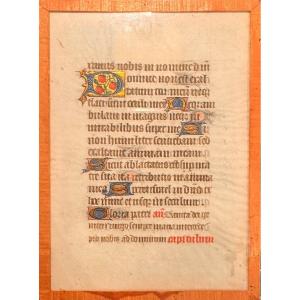 nobis in nomine dni
Domine non est exal
tatum cor meum neq
elati sunt oculi mei Neq am
bulaui in magnis neq in mi
rabilibus super me Si
non humiliter sentiebam sed
exaltaui animam meam
Sicut ablactatus est super ma
tre sua ita retributio in anima
mea Speret isrl in dno ex
hoc nunc et usq in seculum
Gloria patri an Sancta dei ge
nitrix virgo semper maria interce
pro nobis ad dominum